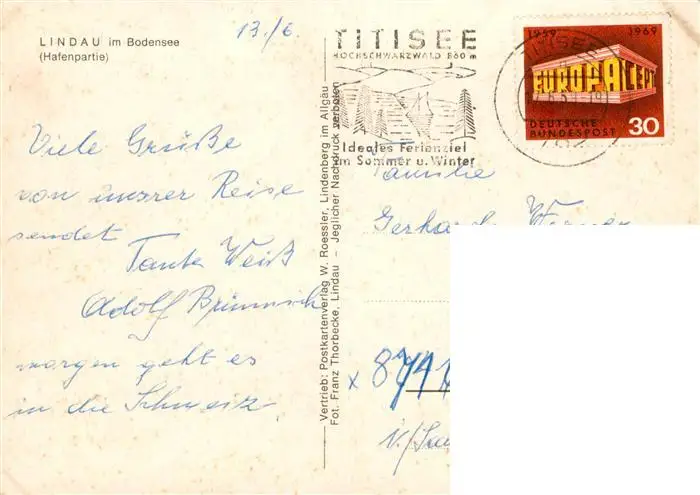 LINDAU im Bodensee
(Hafenpartie)
13./6.
Viele Grüße
von unsrer Reise
sendet
Tante Weiß
Adolf
morgen geht es
in die Schweiz
Vertrieb: Postkartenverlag W. Roessler, Lindenberg im Allgäu
Fot. Franz Thorbecke, Lindau – Jeglicher Nachdruck verboten
TITISEE
HOCHSCHWARZWALD 860 m
Ideales Ferienziel
im Sommer u. Winter
TITISEE
1959 1969
EUROPA CEPT
DEUTSCHE
BUNDESPOST 30
Familie
Gerhard Werner
x 8741